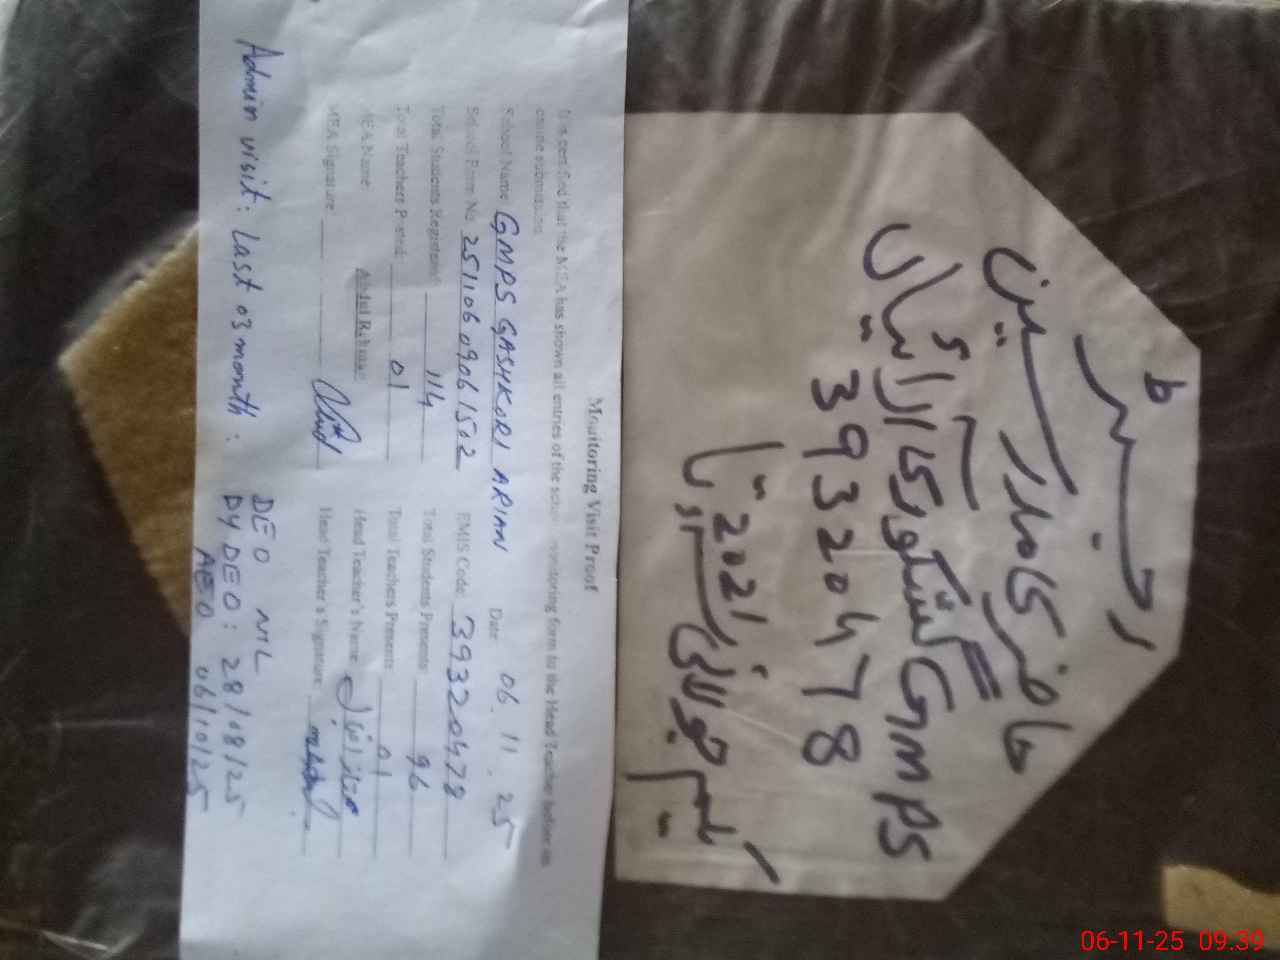 Monitoring Visit Proof
It is certified that the MEA has shown all entries of the school monitoring form to the Head Teacher before an
online submission
School Name GMPS GASHKORI ARIAN Date 06.11.25
School Form No 251106090615 02 EMIS Code 39320478
Total Students Registered 114 Total Students Presents 96
Total Teachers Posted 01 Total Teachers Presents 01
MEA Name Abdul Rehman Head Teacher's Name
MEA Signature Head Teacher's Signature
Admin visit: Last 03 month: DEO NIL
DYDEO: 28/08/25
AEO 06/10/25
رجسٹر
حاضری
GMPS گشکوری ارائیاں
39320478
یکم جولائی 2021 تا
06-11-25 09:39